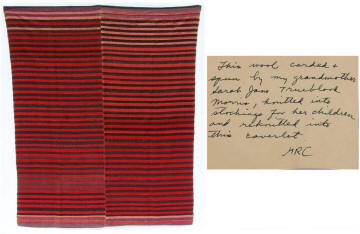 This wool carded &
spun by my grandmother
Sarah Jane Trueblood
Morris, knitted into
stockings for her children
and reknitted into
this coverlet
MRC